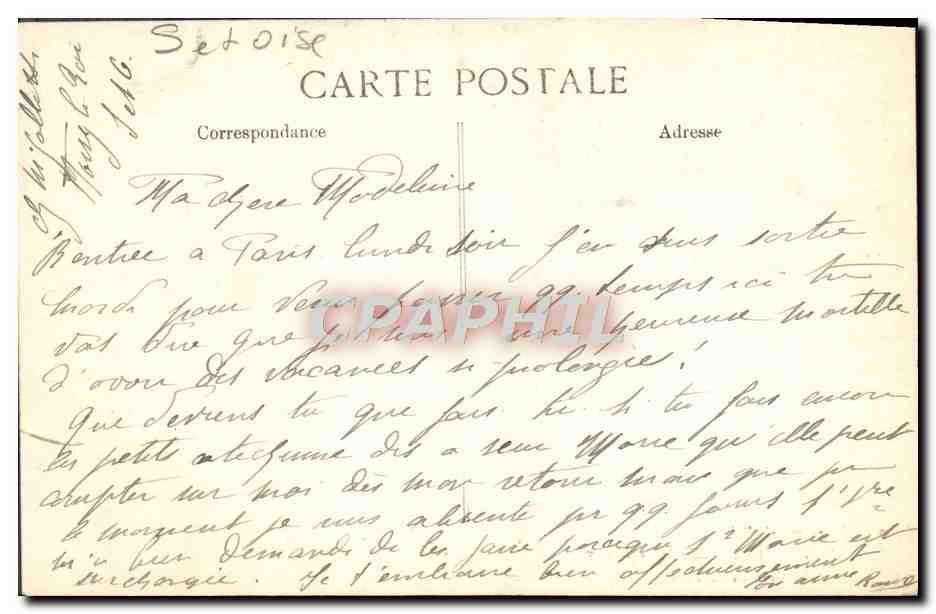 Set Oise
CARTE POSTALE
Correspondance
Adresse
Ma chere Madeleine
Rentree a Paris lundi soir j'en suis sortie
mardi pour venir passer qq. temps ici tu
vas dire que je suis une heureuse mortelle
d'avoir des vacances si prolongées!
Que deviens tu que fais tu. si tu fais encore
les petits dis a seur Marie qu'elle peut
compter sur moi dès mon retour mais que pr
le moment je suis absente pr qq jours
m'a bien demandé de les faire parceque Sr Marie est
surchargée. Je t'embrasse bien affectueusement
Ton amie
CPAPHIL